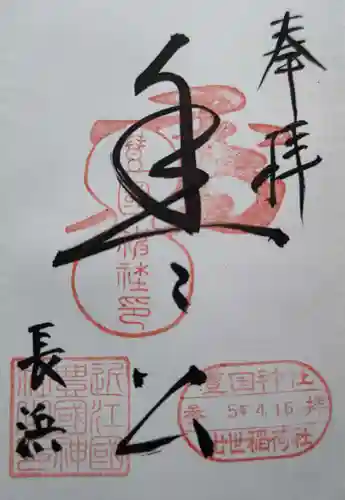 奉拝
公
長浜
豊國神社印
近江國
豊國神
豊国神社
参 5年4.16 拝
出世稲荷社